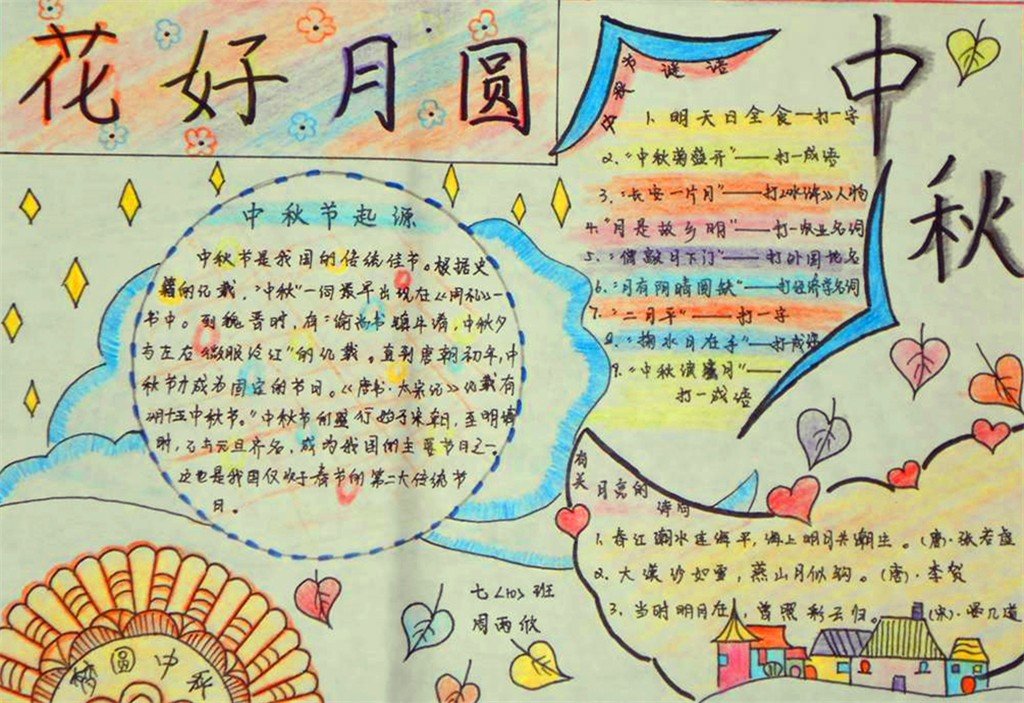 花好月圆
中秋
中秋节起源
中秋节是我国的传统佳节。根据史
籍的记载，“中秋”一词最早出现在《周礼》一
书中。到魏晋时，有“谕尚书镇牛渚，中秋夕
与左右微服泛江”的记载。直到唐朝初年，中
秋节才成为固定的节日。《唐书·太宗记》记载有
中秋节。”中秋节的盛行始于宋朝，至明清
时，已与元旦齐名，成为我国的主要节日之一。
这也是我国仅次于春节的第二大传统节
日。
中秋 谜语
1、明天日全食—打一字
2、“中秋菊盛开”——打一成语
3、“长安一片月”——打《水浒》人物
4、“月是故乡明”——打一
5、“偶敲月下门”——打外国地名
6、“月有阴晴圆缺”——打经济学名词
7、“二月平”——打一字
8、“掬水月在手”——打成语
9、“中秋度蜜月”——
打一成语
有关月亮的
诗句
1、春江潮水连海平，海上明月共潮生。（唐）·张若虚
2、大漠沙如雪，燕山月似钩。（唐）·李贺
3、当时明月在，曾照彩云归。（宋）·晏几道
七<10>班
周雨欣
圆中秋